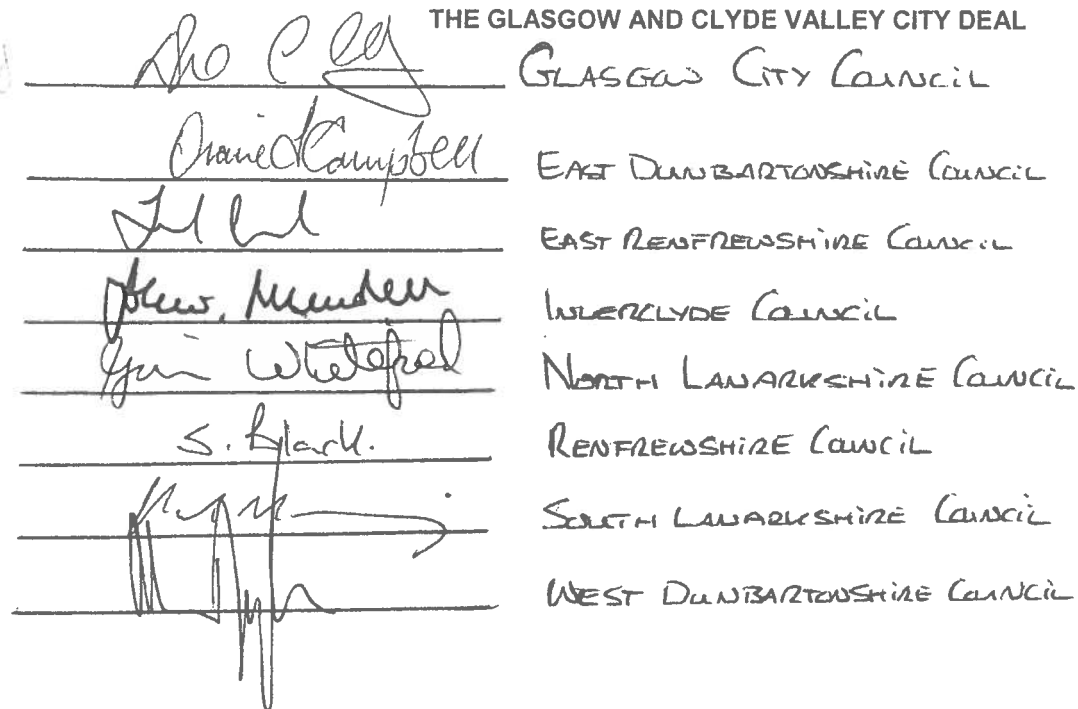 THE GLASGOW AND CLYDE VALLEY CITY DEAL
GLASGOW CITY COUNCIL
Campbell EAST DUNBARTONSHIRE COUNCIL
EAST RENFREWSHIRE COUNCIL
INVERCLYDE COUNCIL
NORTH LANARKSHIRE COUNCIL
S. Black. RENFREWSHIRE COUNCIL
SOUTH LANARKSHIRE COUNCIL
WEST DUNBARTONSHIRE COUNCIL